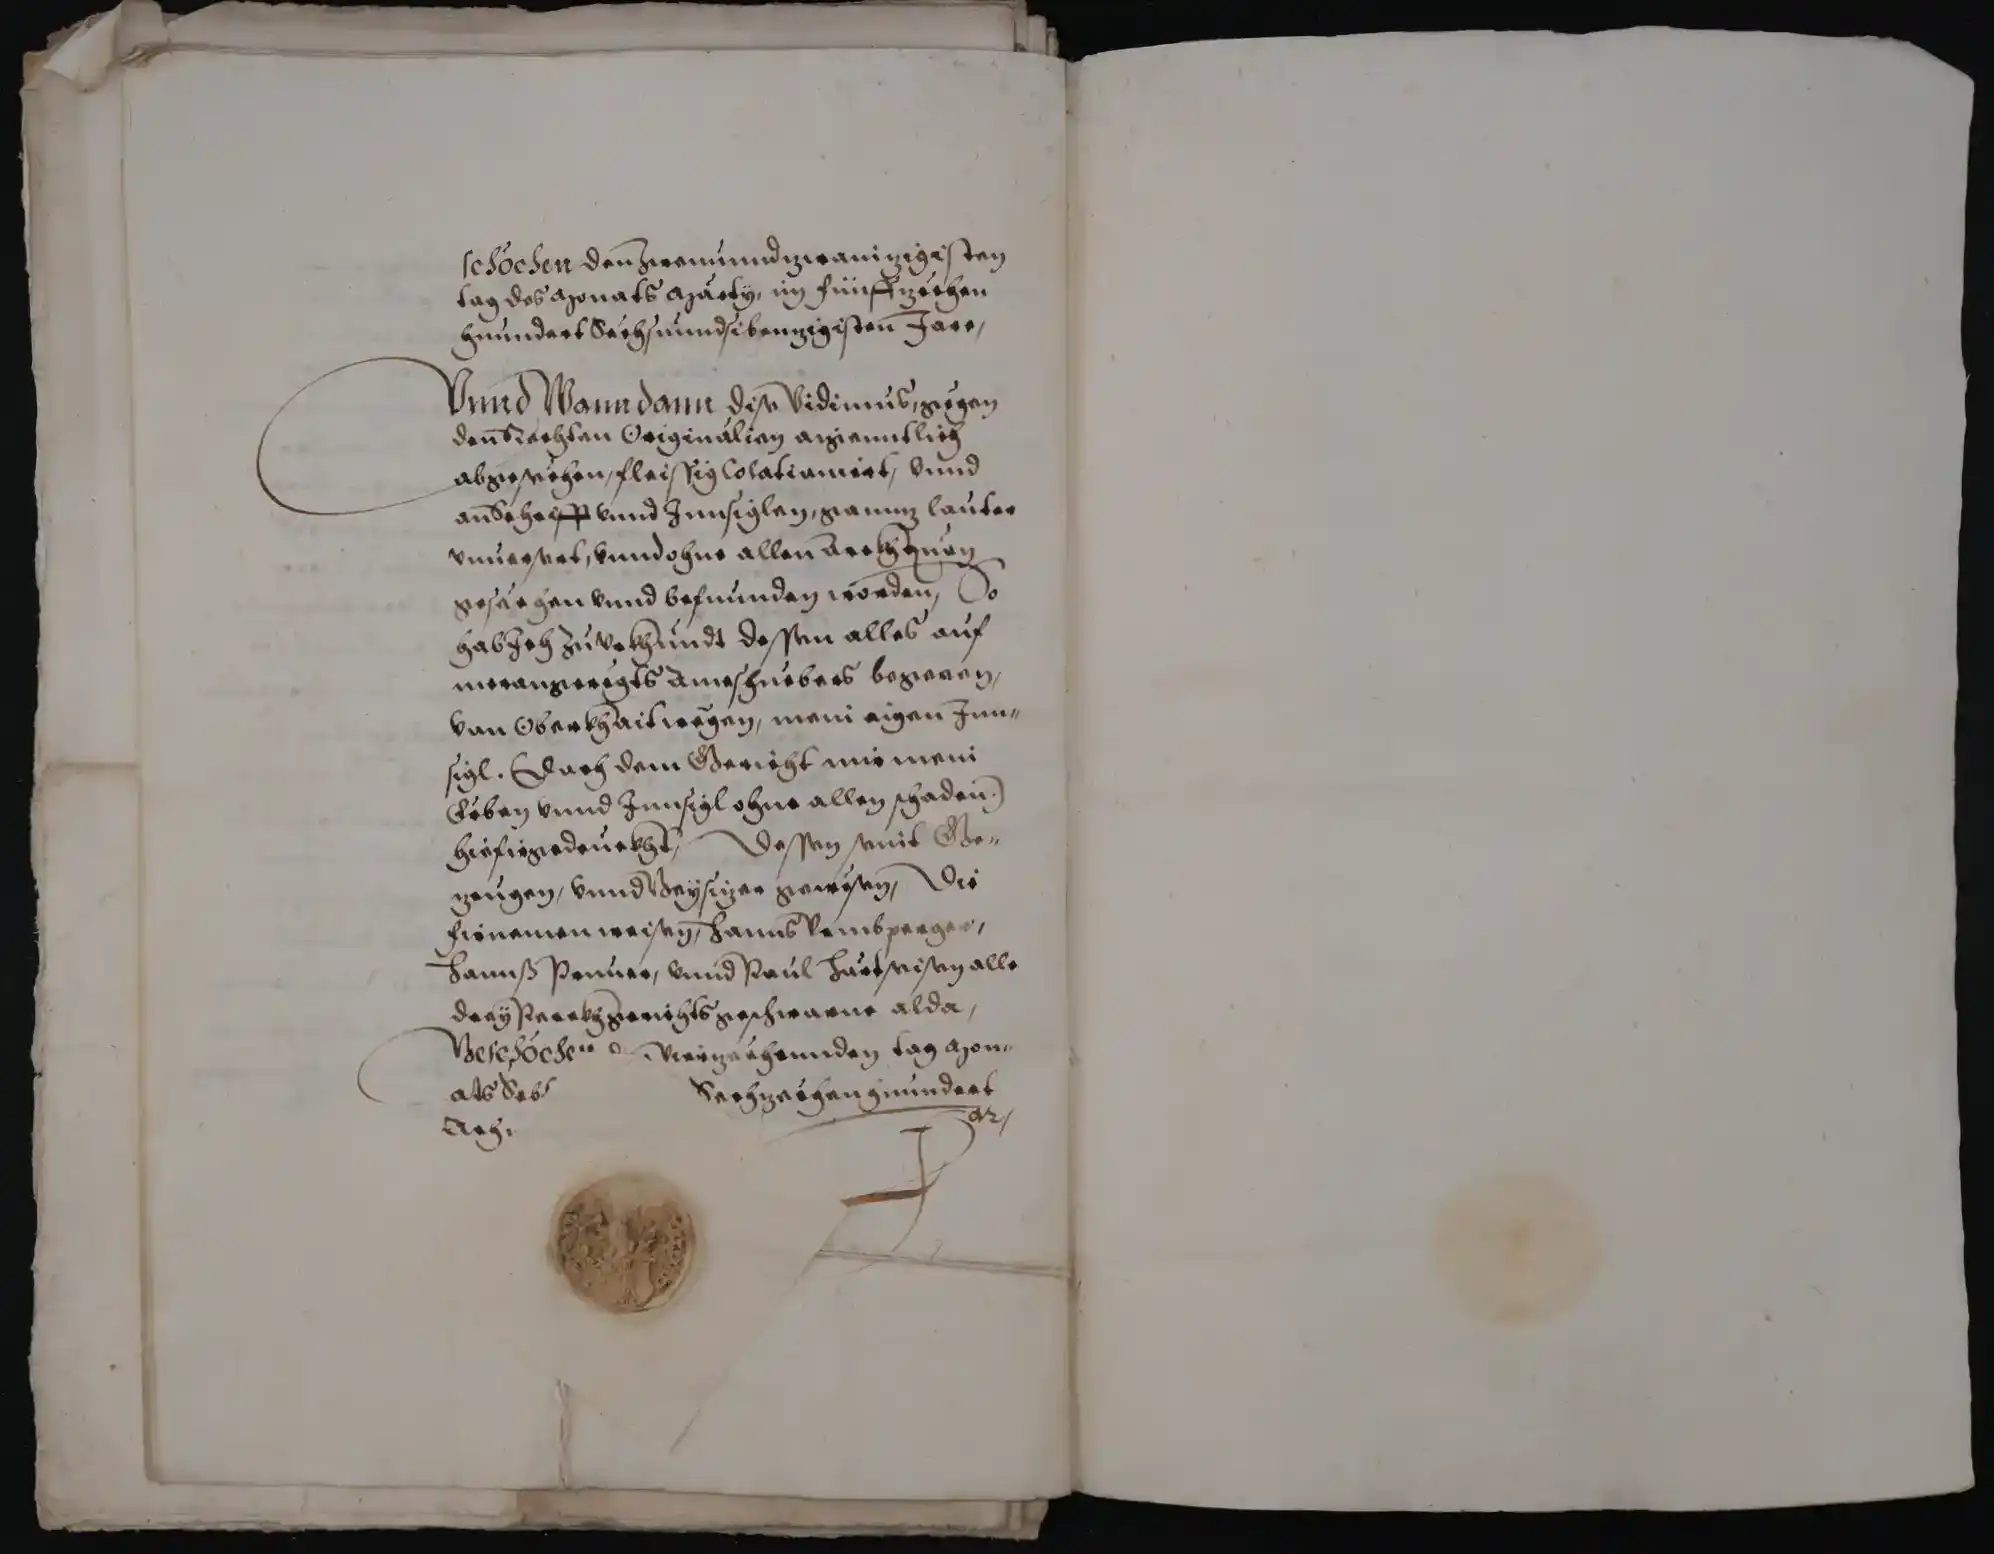 schöchen den zwenunndzwainzigisten
tag des Monats Marty, im fünffzechen
hunndert Sechsunndsibenzigisten Jare,
Vnnd Wann dann dise Vidimus, gegen
den Rechten Originalien aigenntlich
abgesechen, fleissig Colationiert, vnnd
an Schrifft vnnd Innsiglen, gannz lauter
vnuersert, vnnd ohne allen Arckhquen
gesechen vnnd befunnden worden, So
hab Ich zu Vrkhundt dessen alles auf
merangeregts Ambschreibers begeren,
von Oberkhait wegen, mein aigen Inn-
sigl. (Doch dem Gericht mir mein
Erben vnnd Innsigl ohne allen schaden.)
hiefirgedruckht, Dessen seint Ge-
zeugen, vnnd Beysizer gewesen, Die
firnemen weisen, Hanns Rembsperger,
Hannß Penner, vnnd Paul Hartseisen alle
drey Perckhgerichtsgeschworne alda,
Beschöchen vierzechennden tag Mon-
ats Seb Sechzechenhunndert
Ach. ar,